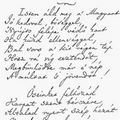 Isten áldd meg a Magyart
Jó kedvvel, bőséggel,
Nyújts feléje védő kart
Ha küzd ellenséggel,
Bal sors a kit régen tép
Hozz rá víg esztendőt,
Megbűnhődte már e nép
A multat s jövendőt!
Őseinket felhozád
Kárpát szent bérczére,
Általad nyert szép hazát